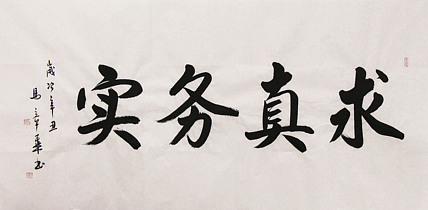 求真务实
歲次辛丑
馬 书